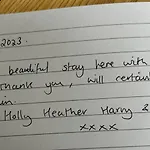 2023.
beautiful stay here with
Thank you, will certain
in.
Holly Heather Harry &
xxxx